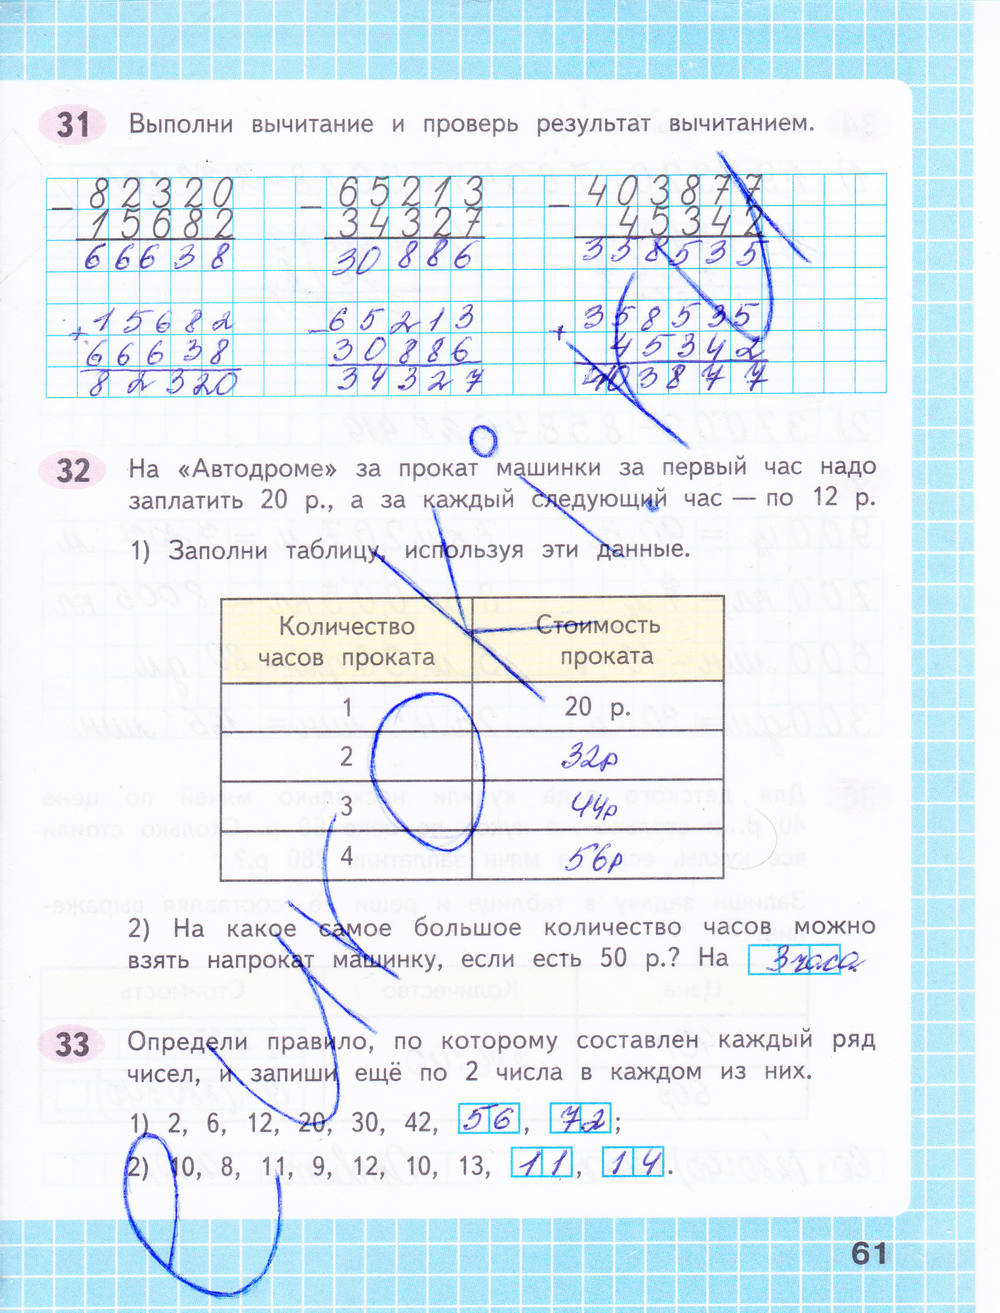 31 Выполни вычитание и проверь результат вычитанием.
− 82320 − 65213 − 403877
15682 34327 45342
66638 30886 358535
+ 15682 − 65213 + 358535
66638 30886 45342
82320 34327 403877
32 На «Автодроме» за прокат машинки за первый час надо
заплатить 20 р., а за каждый следующий час — по 12 р.
1) Заполни таблицу, используя эти данные.
Количество Стоимость
часов проката проката
1 20 р.
2 32р
3 44р
4 56р
2) На какое самое большое количество часов можно
взять напрокат машинку, если есть 50 р.? На 3 часа.
33 Определи правило, по которому составлен каждый ряд
чисел, и запиши ещё по 2 числа в каждом из них.
1) 2, 6, 12, 20, 30, 42, 56, 72;
2) 10, 8, 11, 9, 12, 10, 13, 11, 14.
61